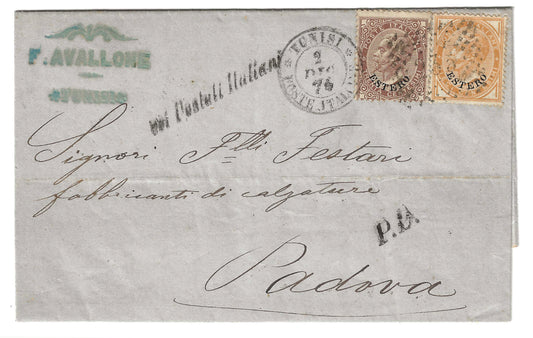 F. AVALLONE
TUNISI
coi Postali Italiani
TUNISI
2
DIC
76
POSTE ITALIANE
ESTERO
ESTERO
Signori F.lli Festari
fabbricanti di calzature
P.D.
Padova